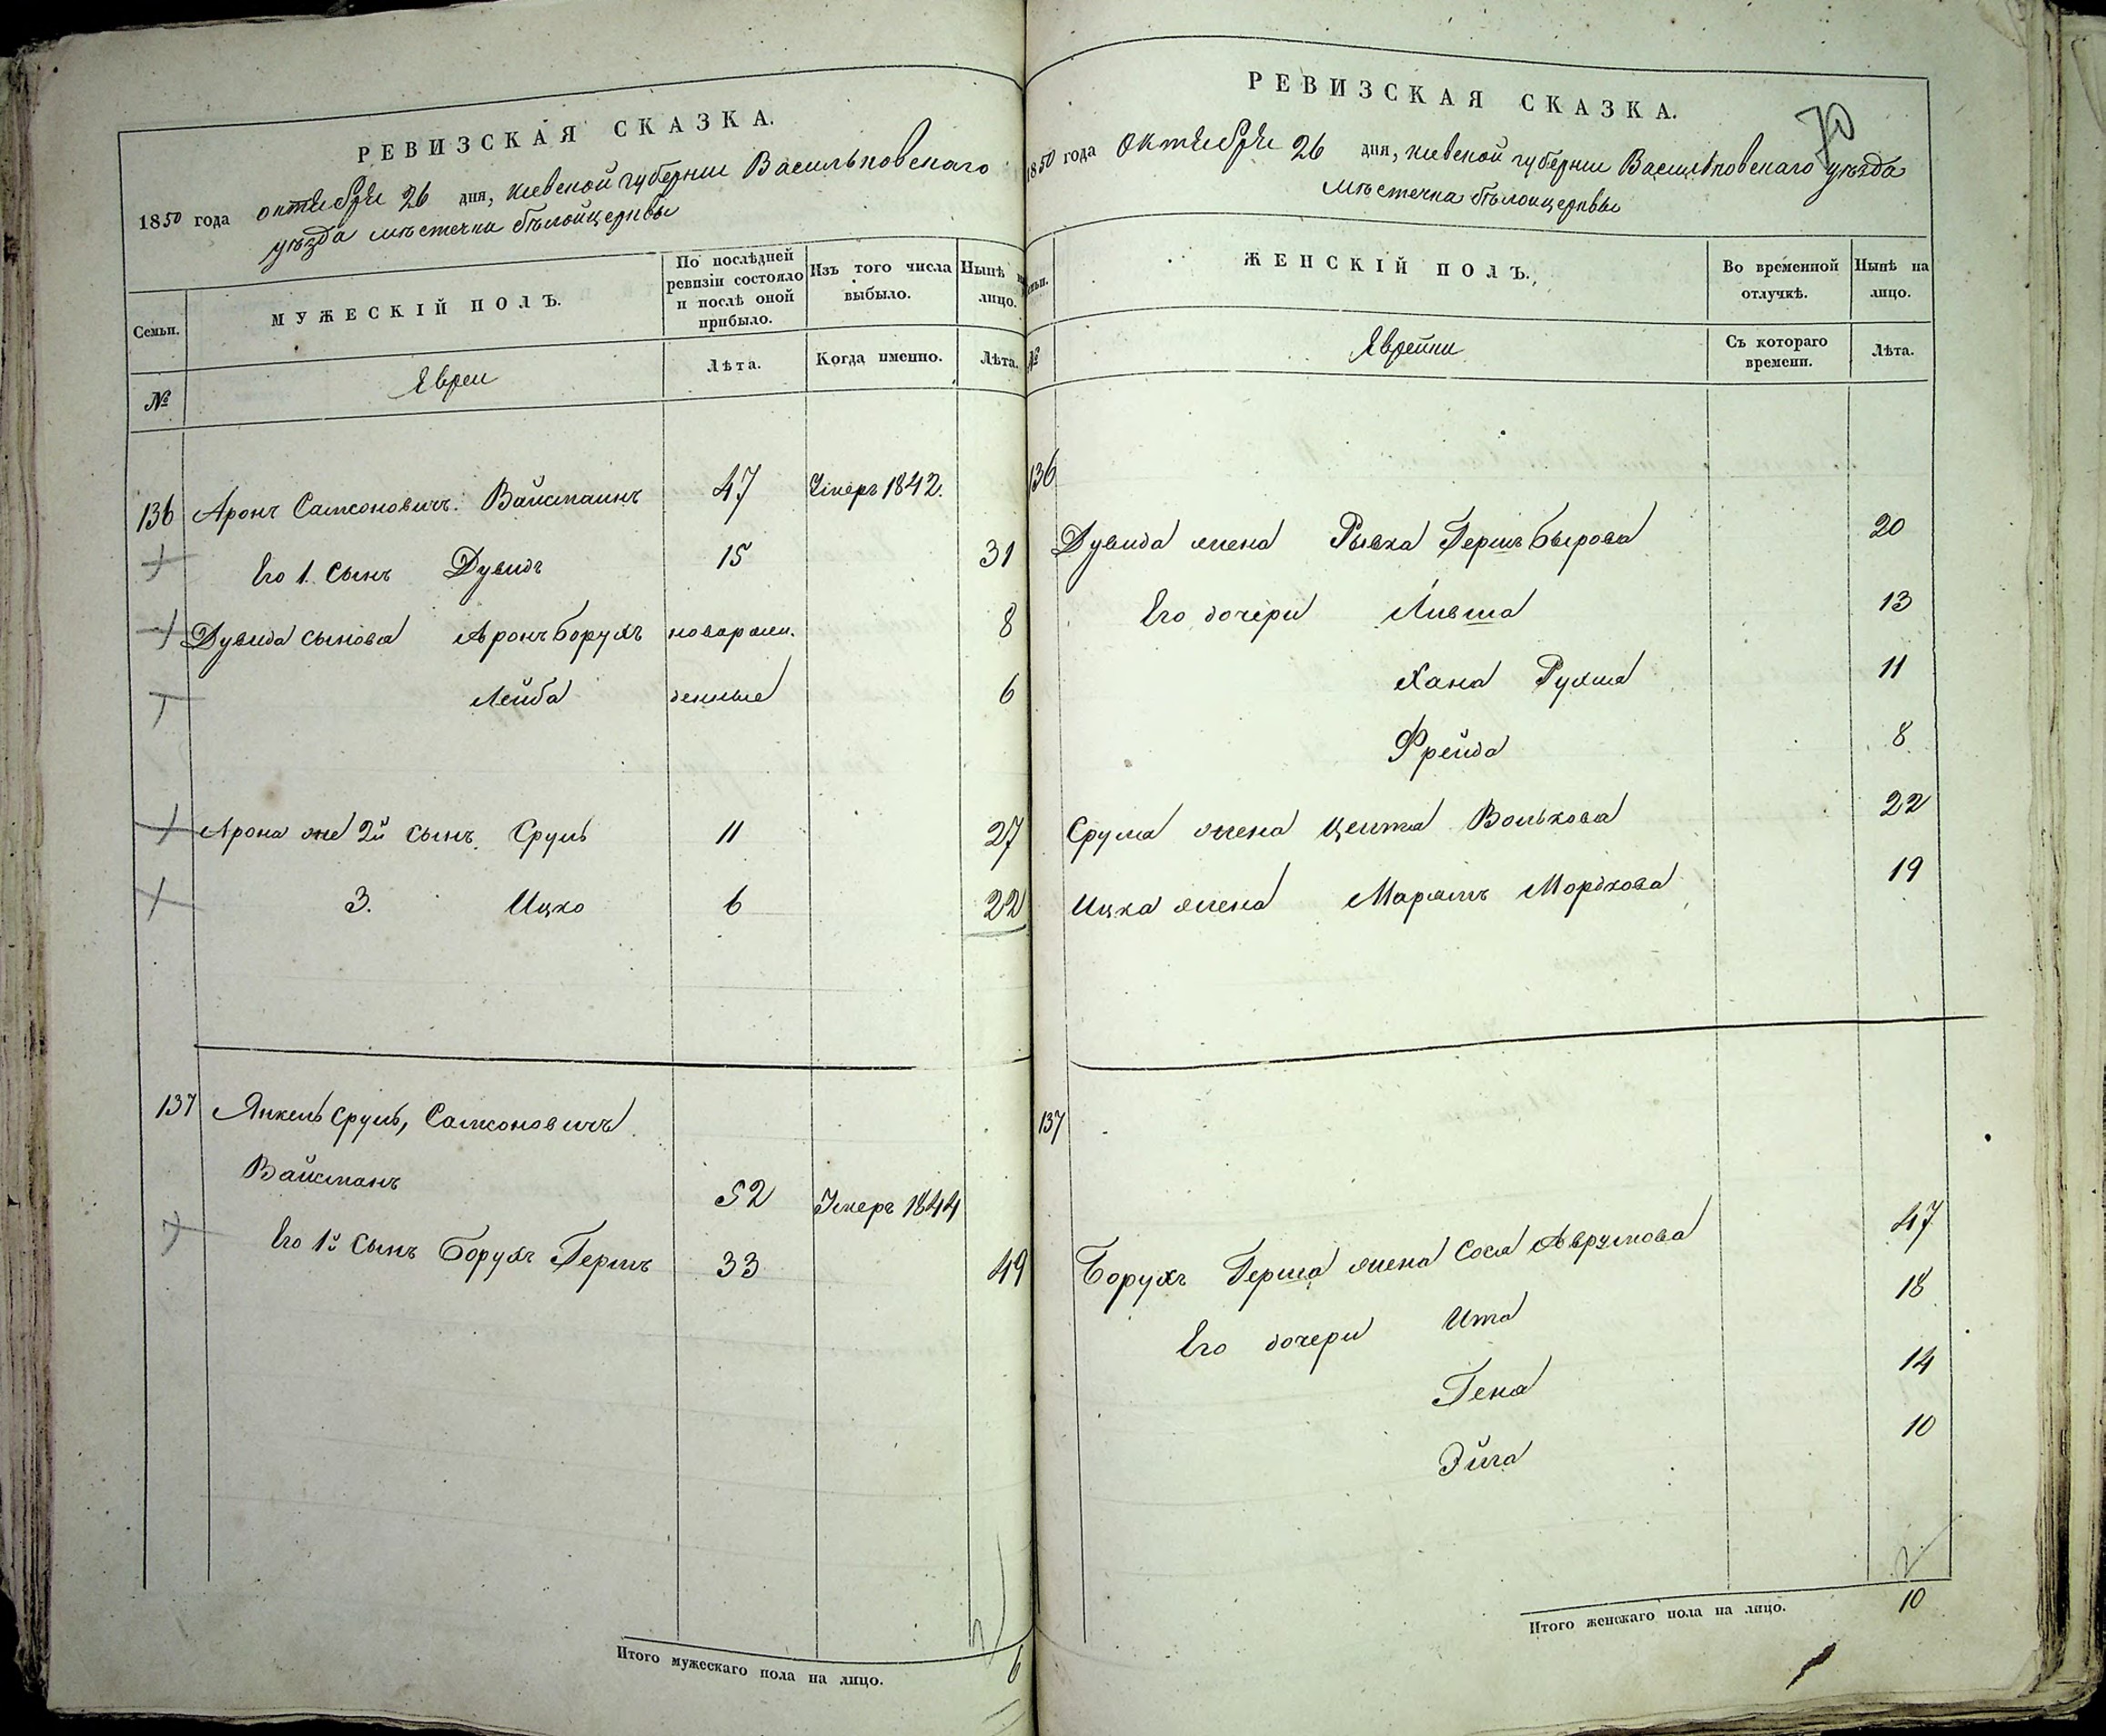 РЕВИЗСКАЯ СКАЗКА.
1850 года октября 26 дня, киевской губернии Васильковскаго
уѣзда мѣстечка бѣлойцеркви
Семьи.
МУЖЕСКІЙ ПОЛЪ.
По послѣдней
ревизіи состояло
и послѣ оной
прибыло.
Изъ того числа
выбыло.
Нынѣ на
лицо.
№
Евреи
Лѣта.
Когда именно.
Лѣта.
136 Аронъ Самсоновичъ Вайсманнъ 47 Умеръ 1842.
Его 1. сынъ Дувидъ 15 31
Дувида сыновья Аронъ Борухъ новорож. 8
Лейба денные 6
Арона же 2й сынъ Сруль 11 27
3. Ицко 6 22
137 Янкель Сруль, Самсоновичъ
Вайсманъ 52 Умеръ 1844
Его 1й сынъ Борухъ Гершъ 33 49
Итого мужескаго пола на лицо. 6
РЕВИЗСКАЯ СКАЗКА.
70
1850 года октября 26 дня, киевской губернии Васильковскаго уѣзда
мѣстечка бѣлойцеркви
Семьи.
ЖЕНСКІЙ ПОЛЪ.
Во временной
отлучкѣ.
Нынѣ на
лицо.
№
Еврейки
Съ котораго
времени.
Лѣта.
136
Дувида жена Рывка Гершъ Бырова 20
Его дочери Ливша 13
Хана Рухля 11
Фрейда 8
Сруля жена Цейта Волькова 22
Ицка жена Марямъ Мордкова 19
137
Борухъ Герша жена Сося Аврумова 47
Его дочери Ита 18
Гена 14
Эйга 10
Итого женскаго пола на лицо. 10